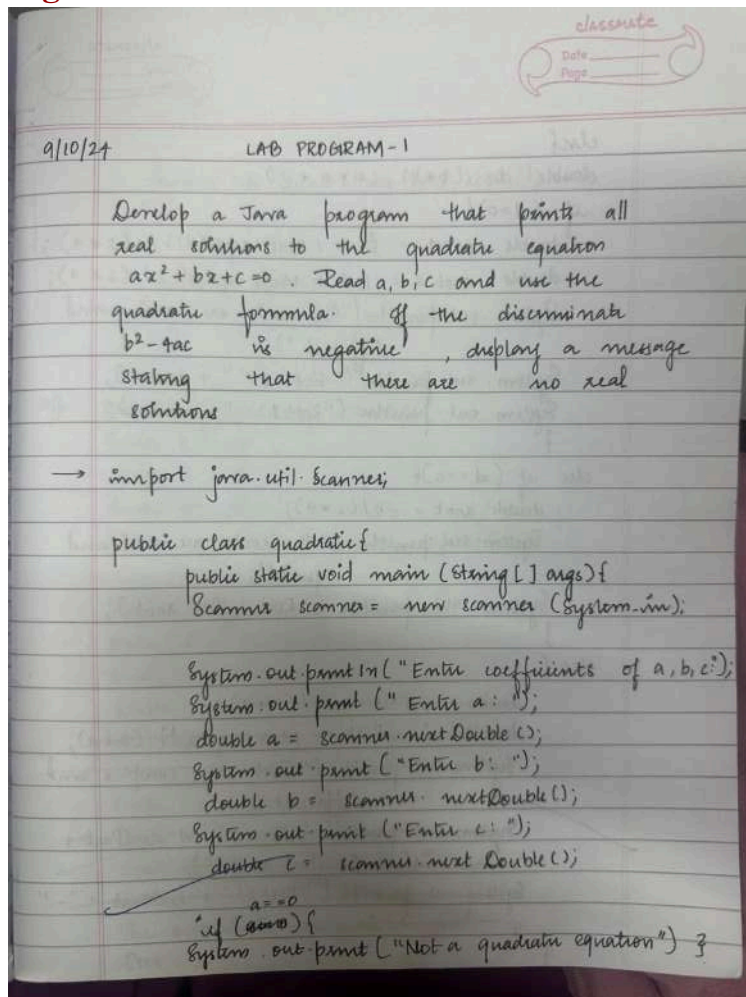 classmate
Date
Page
9/10/24 LAB PROGRAM-1
Develop a Java program that prints all
real solutions to the quadratic equation
ax² + bx + c = 0 . Read a, b, c and use the
quadratic formula. If the discriminate
b² - 4ac is negative , display a message
stating that there are no real
solutions
→ import java.util.Scanner;
public class quadratic {
public static void main (String [ ] args) {
Scanner scanner = new scanner (System.in);
System.out.println ("Enter coefficients of a, b, c:");
System.out.print (" Enter a: ");
double a = scanner.nextDouble ();
System.out.print ("Enter b: ");
double b = scanner.nextDouble ();
System.out.print ("Enter c: ");
double c = scanner.nextDouble ();
if (a==0) {
System.out.print ("Not a quadratic equation") }